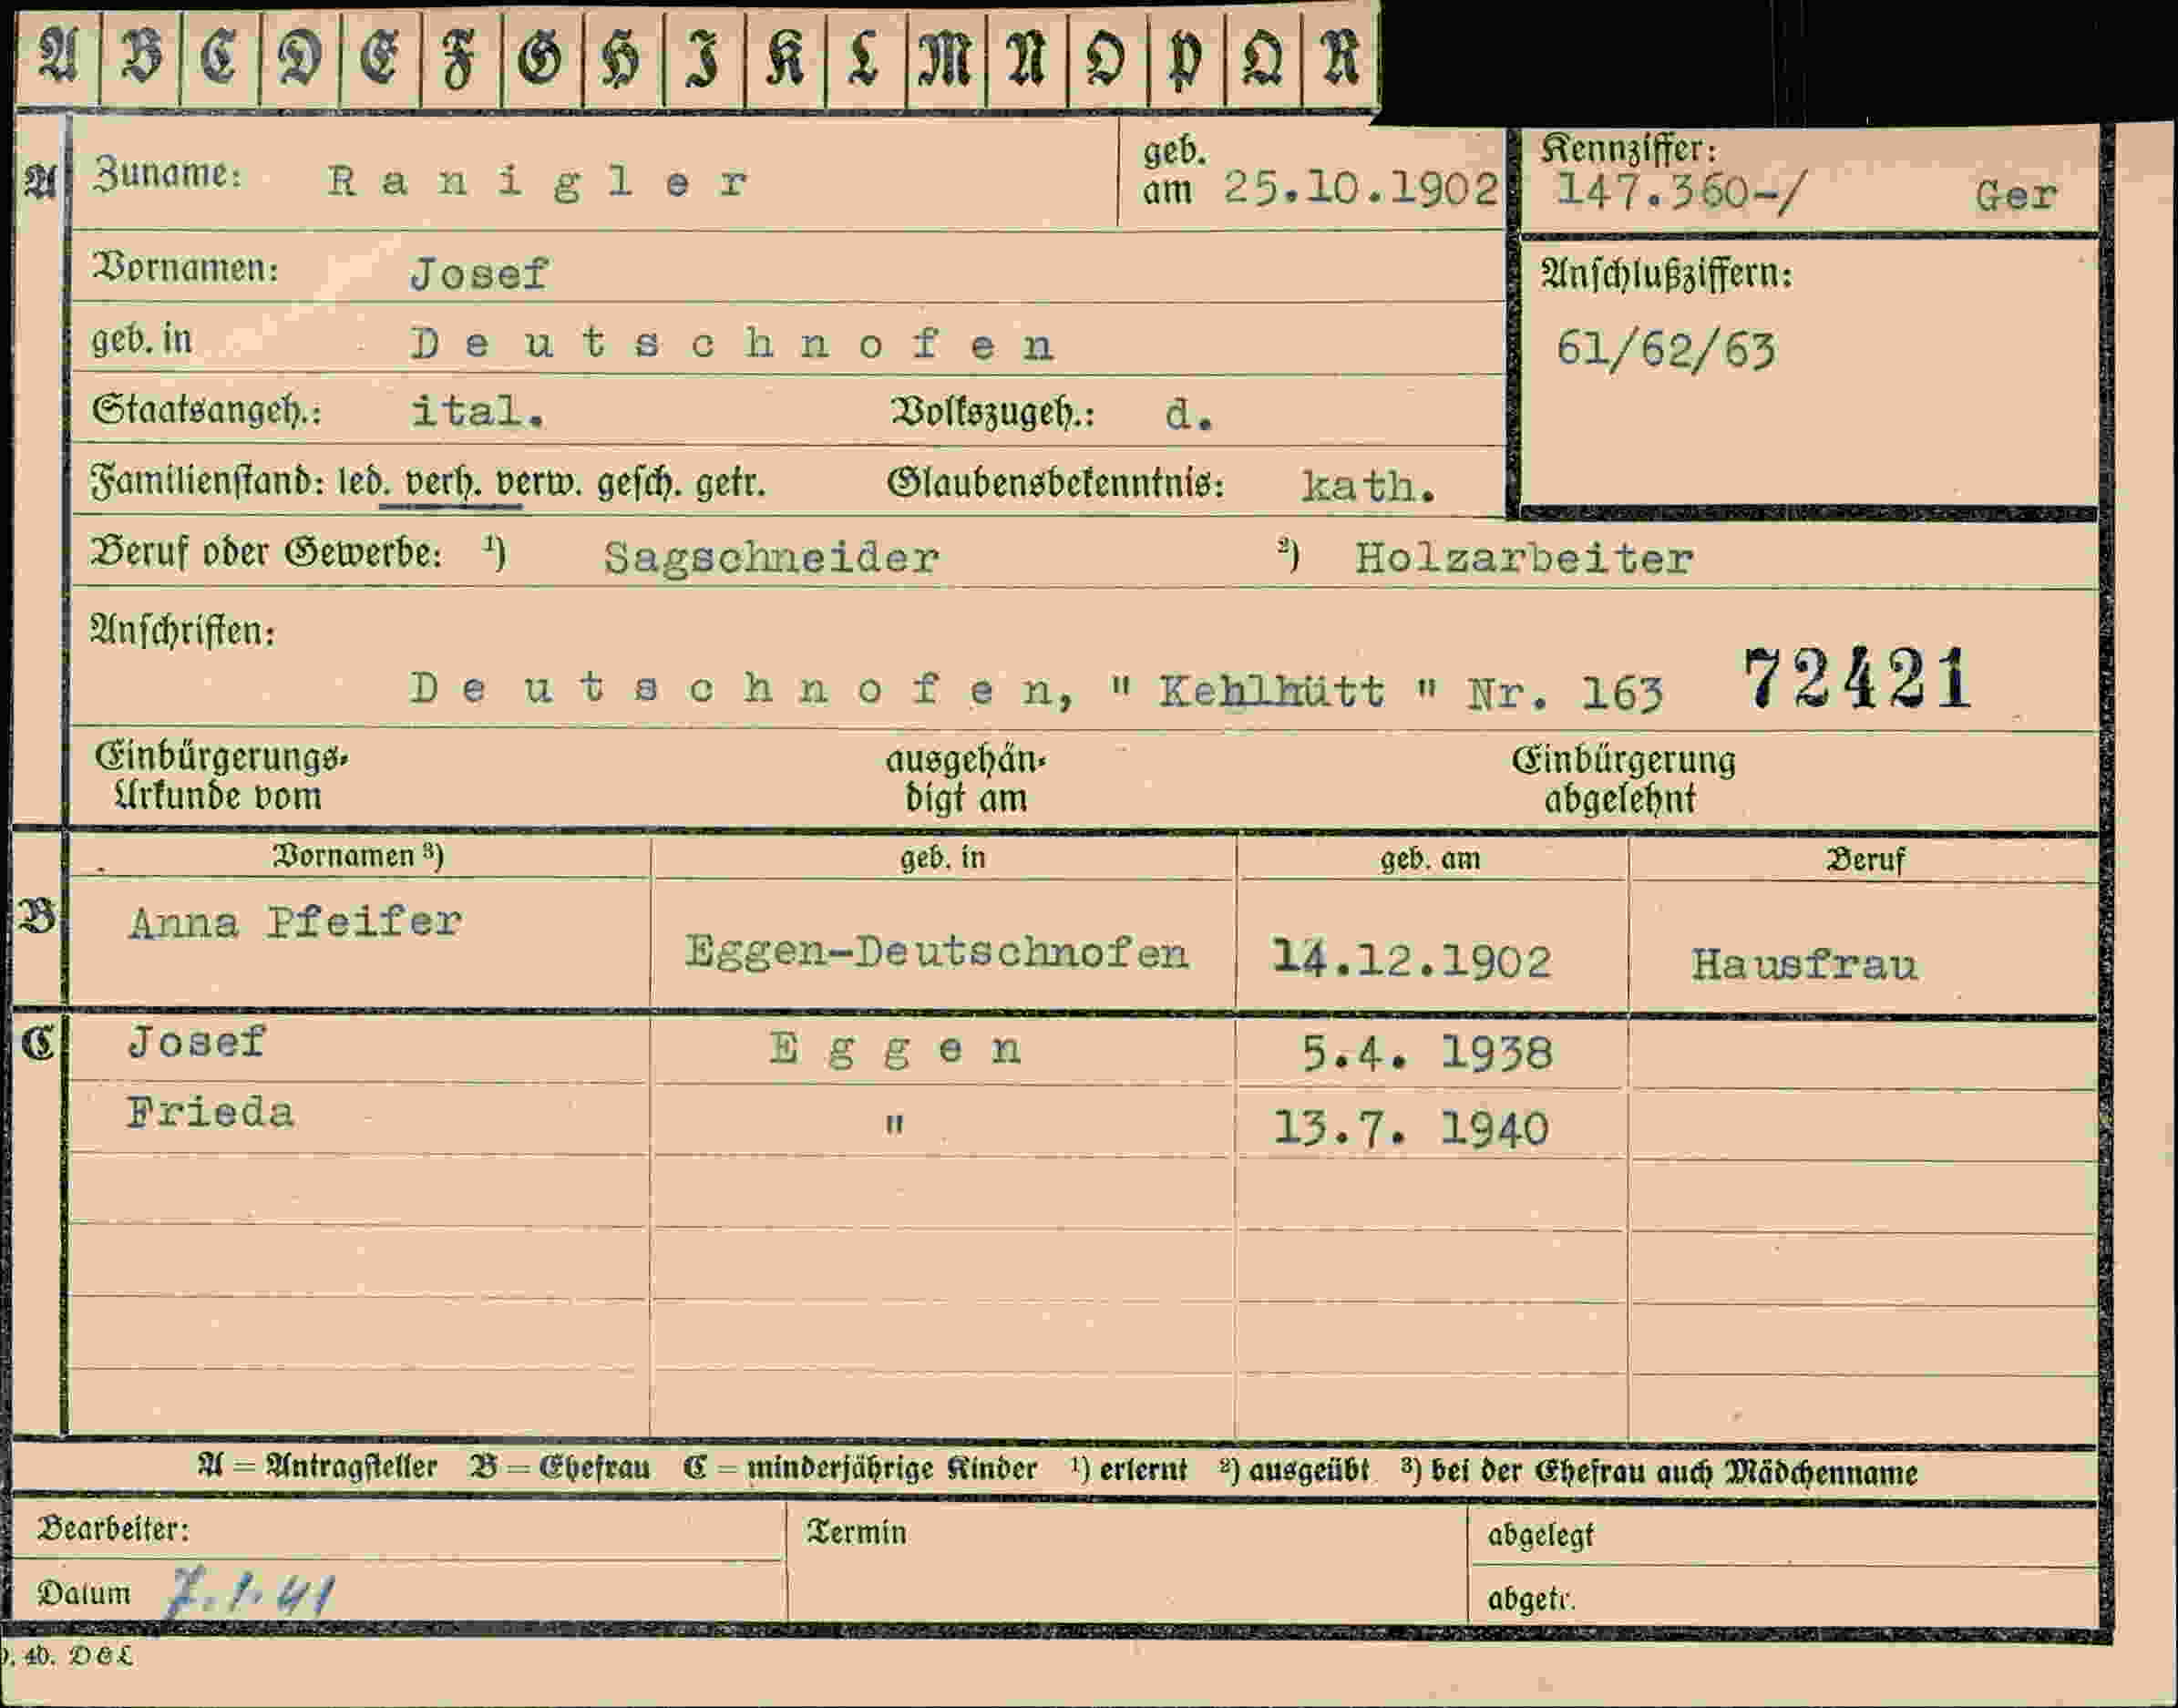 A B C D E F G H I K L M N O P Q R
A Zuname: Ranigler geb. am 25.10.1902 Kennziffer: 147.360-/ Ger
Vornamen: Josef Anschlußziffern:
geb. in Deutschnofen 61/62/63
Staatsangeh.: ital. Volkszugeh.: d.
Familienstand: led. verh. verw. gesch. getr. Glaubensbekenntnis: kath.
Beruf oder Gewerbe: ¹) Sagschneider ²) Holzarbeiter
Anschriften:
Deutschnofen, " Kehlhütt " Nr. 163 72421
Einbürgerungs- ausgehän- Einbürgerung
Urkunde vom digt am abgelehnt
Vornamen ³) geb. in geb. am Beruf
B Anna Pfeifer Eggen-Deutschnofen 14.12.1902 Hausfrau
C Josef Eggen 5.4. 1938
Frieda " 13.7. 1940
A = Antragsteller B = Ehefrau C = minderjährige Kinder ¹) erlernt ²) ausgeübt ³) bei der Ehefrau auch Mädchenname
Bearbeiter: Termin abgelegt
Datum 7.1.41 abgetr.
40. DEL